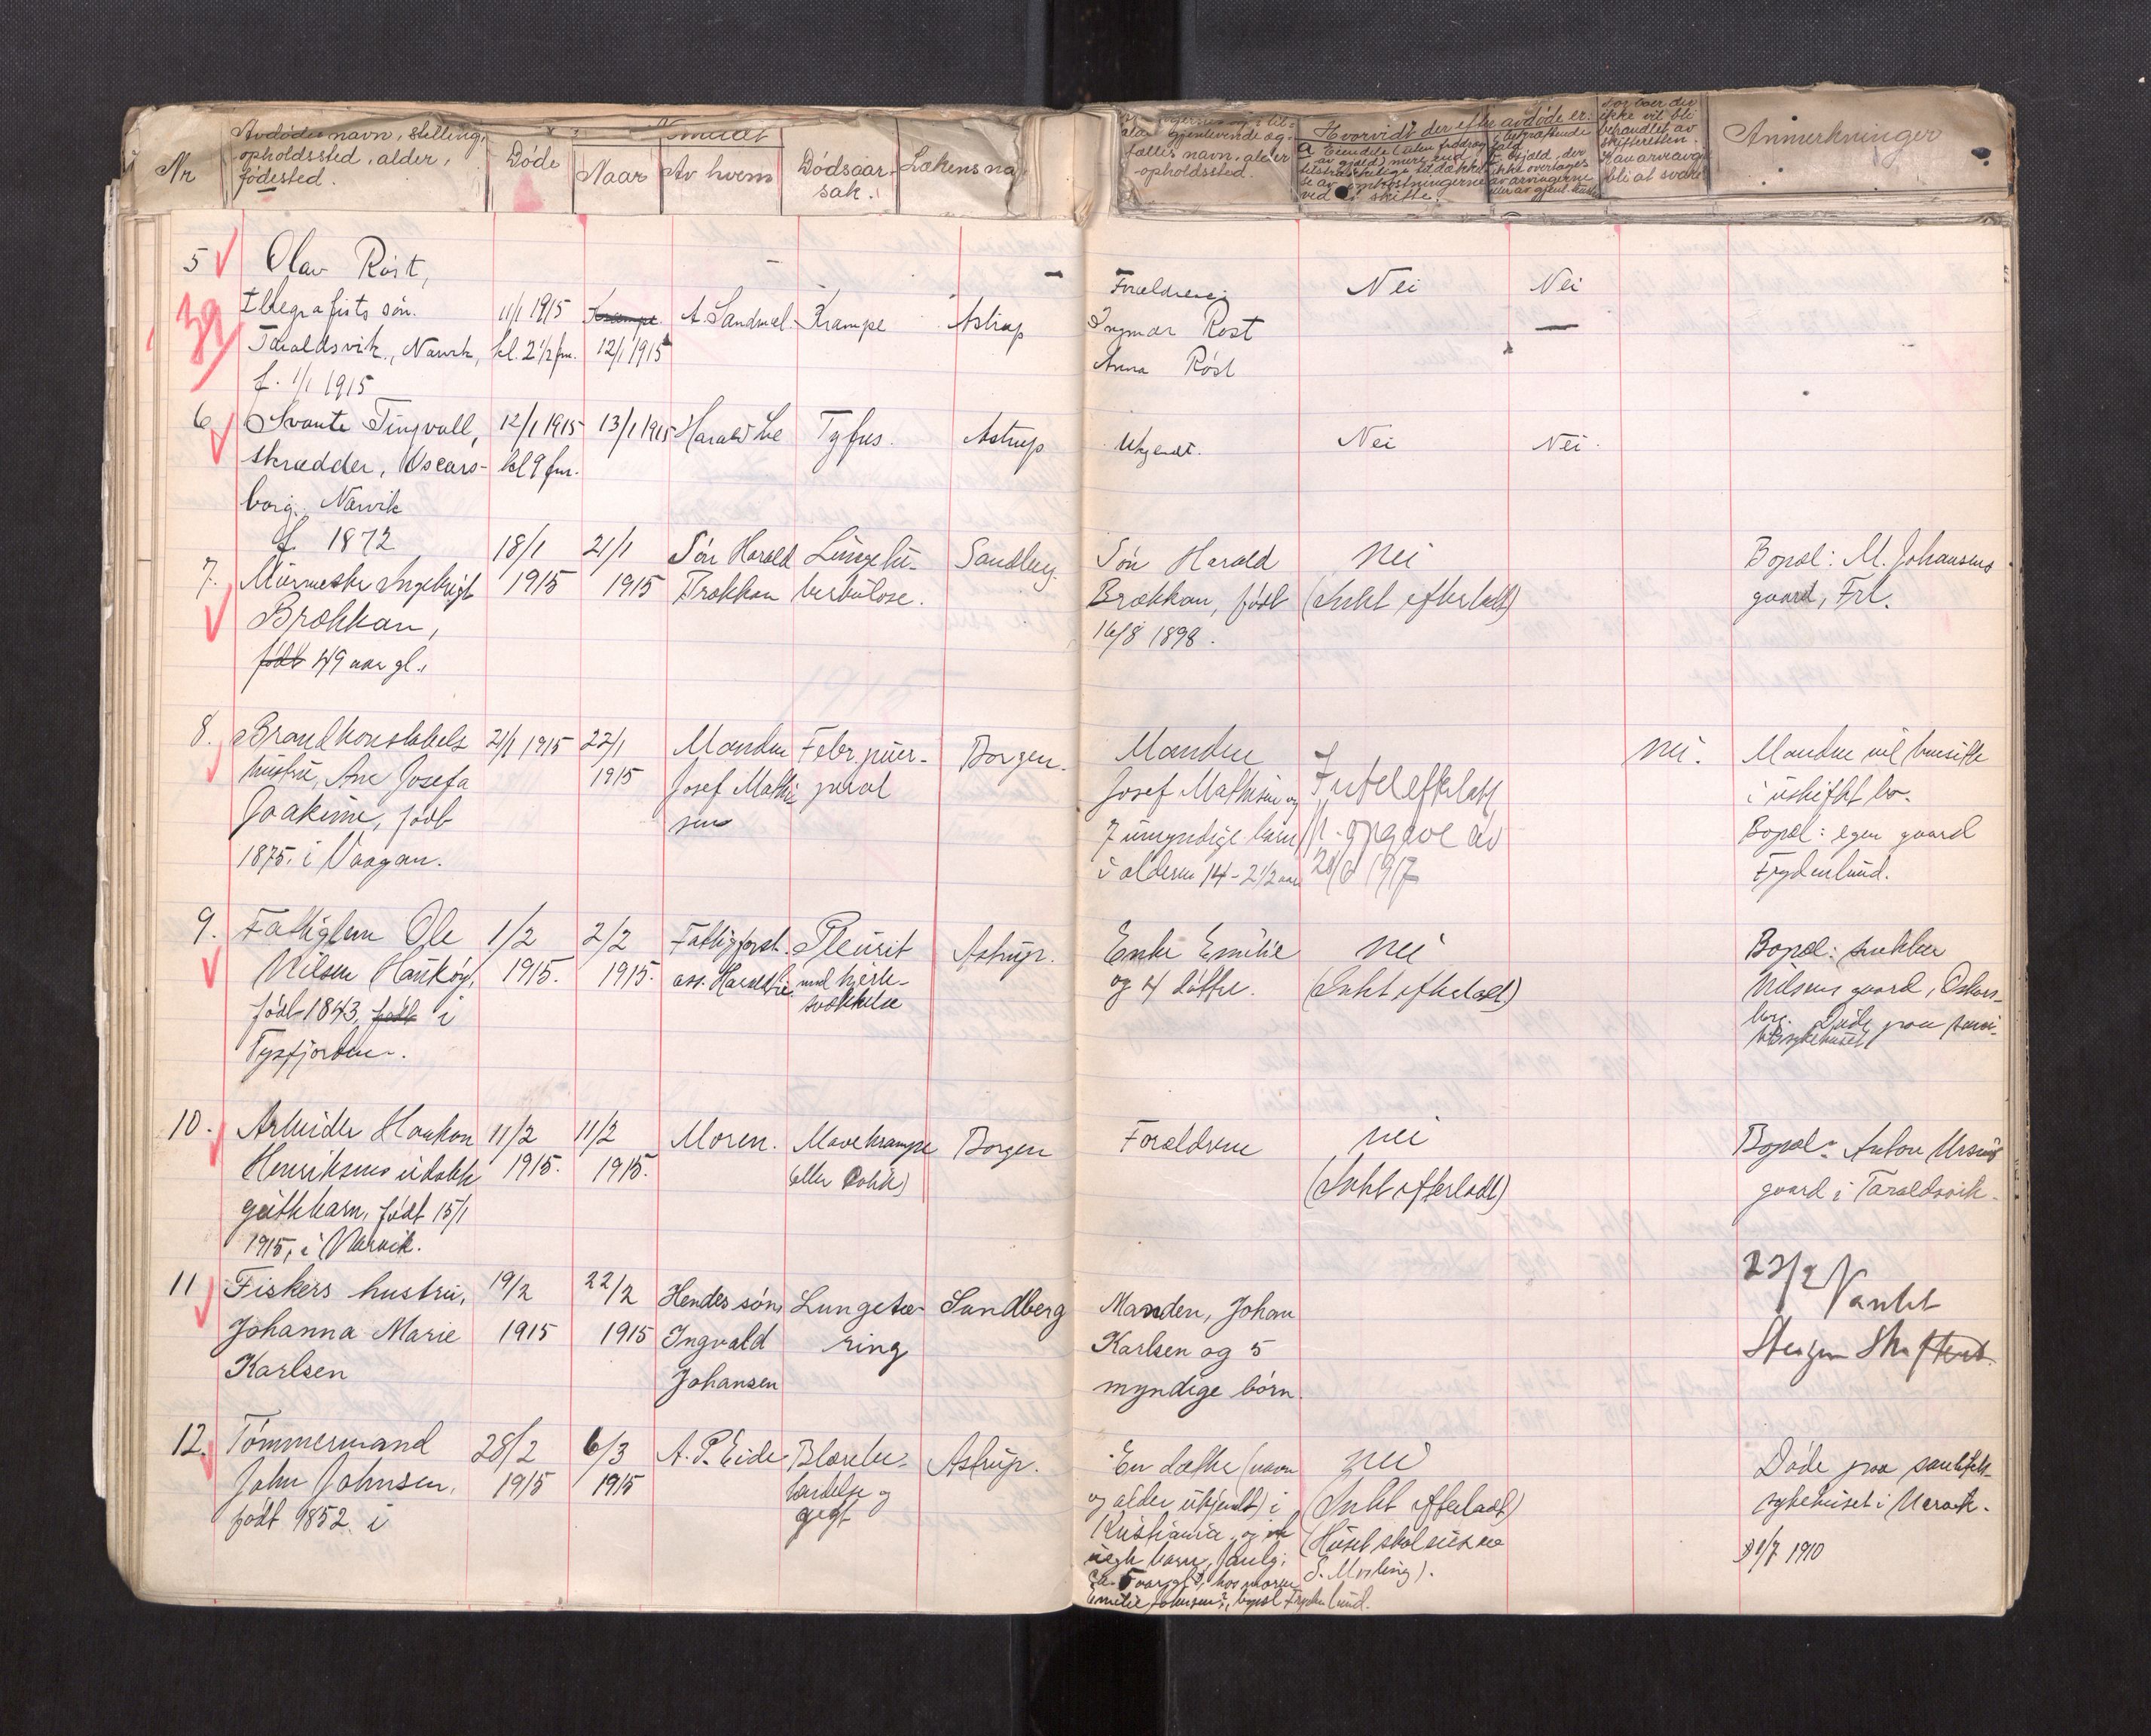 Nr
Avdødes navn, stilling,
opholdssted, alder,
fødested.
Døde
Anmeldt
Naar
Av hvem
Dødsaar-
sak.
Lækens na
gjenlevende æg-
tefælles navn, alder
opholdssted.
Hvorvidt der efter avdøde er:
Anmerkninger
5
Olav Röst,
Telegrafists søn.
Taraldsvik, Narvik,
f. 1/1 1915
11/1 1915
kl. 2 1/2 fm.
Krampe
12/1 1915
A. Sandmel
Krampe
Astrup
Forældrene:
Ingmar Röst
Anna Röst
Nei
Nei
39
6
Svante Tingvall,
skrædder, Oscars-
borg, Narvik
f. 1872
12/1 1915
kl 9 fm.
13/1 1915
Harald Lie
Tyfus.
Astrup
Ukjendt.
Nei
Nei.
7.
Murmester Ingebrigt
Brækkan,
født 49 aar gl.
18/1
1915
21/1
1915
Søn Harald
Brækkan
Lungetu-
berkulose.
Sandberg
Søn Harald
Brækkan, født
16/8 1898.
nei
(Intet efterladt)
Bopæl: M. Johansens
gaard, Frl.
8.
Brandkonstabels
hustru, Ane Josefa
Joakime, født
1875, i Vaagan.
21/1 1915
22/1
1915
Manden
Josef Mathi
sen
Febr. puer-
peral
Borgen.
Manden
Josef Mathisen og
7 umyndige barn
i alderen 14 - 2 1/2 aar
Intet efterladt
opgave av
1917
nei.
Manden vil hensitte
i uskiftet bo.
Bopæl: egen gaard
Frydenlund.
9.
Fattiglem Ole
Nilsen Haukøy,
født 1843, født i
Tysfjorden.
1/2
1915.
2/2
1915.
Fattigforst.
ass. Harald Lie
Pleurit
med hjerte-
svækkelse
Astrup.
Enke Emilie
og 4 døttre.
nei
(Intet efterladt)
Bopæl: snekker
Nilsens gaard, Oskars-
borg. Døde paa sani-
tetssykehuset
10.
Arbeider Haakon
Henriksens udøbte
guttebarn, født 15/1
1915, i Narvik.
11/2
1915.
11/2
1915.
Moren.
Mavekrampe
(eller Colik)
Borgen
Forældrene
nei
(Intet efterladt)
Bopæl: Anton Ursins
gaard i Taraldsvik.
11
Fiskers hustru,
Johanna Marie
Karlsen
19/2
1915
22/2
1915
Hendes søn,
Ingvald
Johansen
Lungetæ-
ring
Sandberg
Manden, Johan
Karlsen og 5
myndige børn.
22/2
Steigen Skifteret.
12.
Tømmermand
John Johnsen,
født 1852. i
28/2
1915
6/3
1915
A. P. Eide
Blærebe-
tændelse og
gigt
Astrup.
En datter (navn
og alder ukjendt) i
Kristiania, og et
uegte barn,
ca. 5 aar gl., hos moren
Emilie Johnsen, bopæl Frydenlund.
nei
(Intet efterladt)
(Huset skal eies av
S. Mosling).
Døde paa sanitets-
sykehuset i Narvik.
1/7 1910